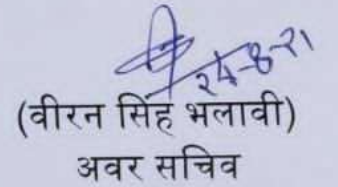 24-8-21
(वीरन सिंह भलावी)
अवर सचिव